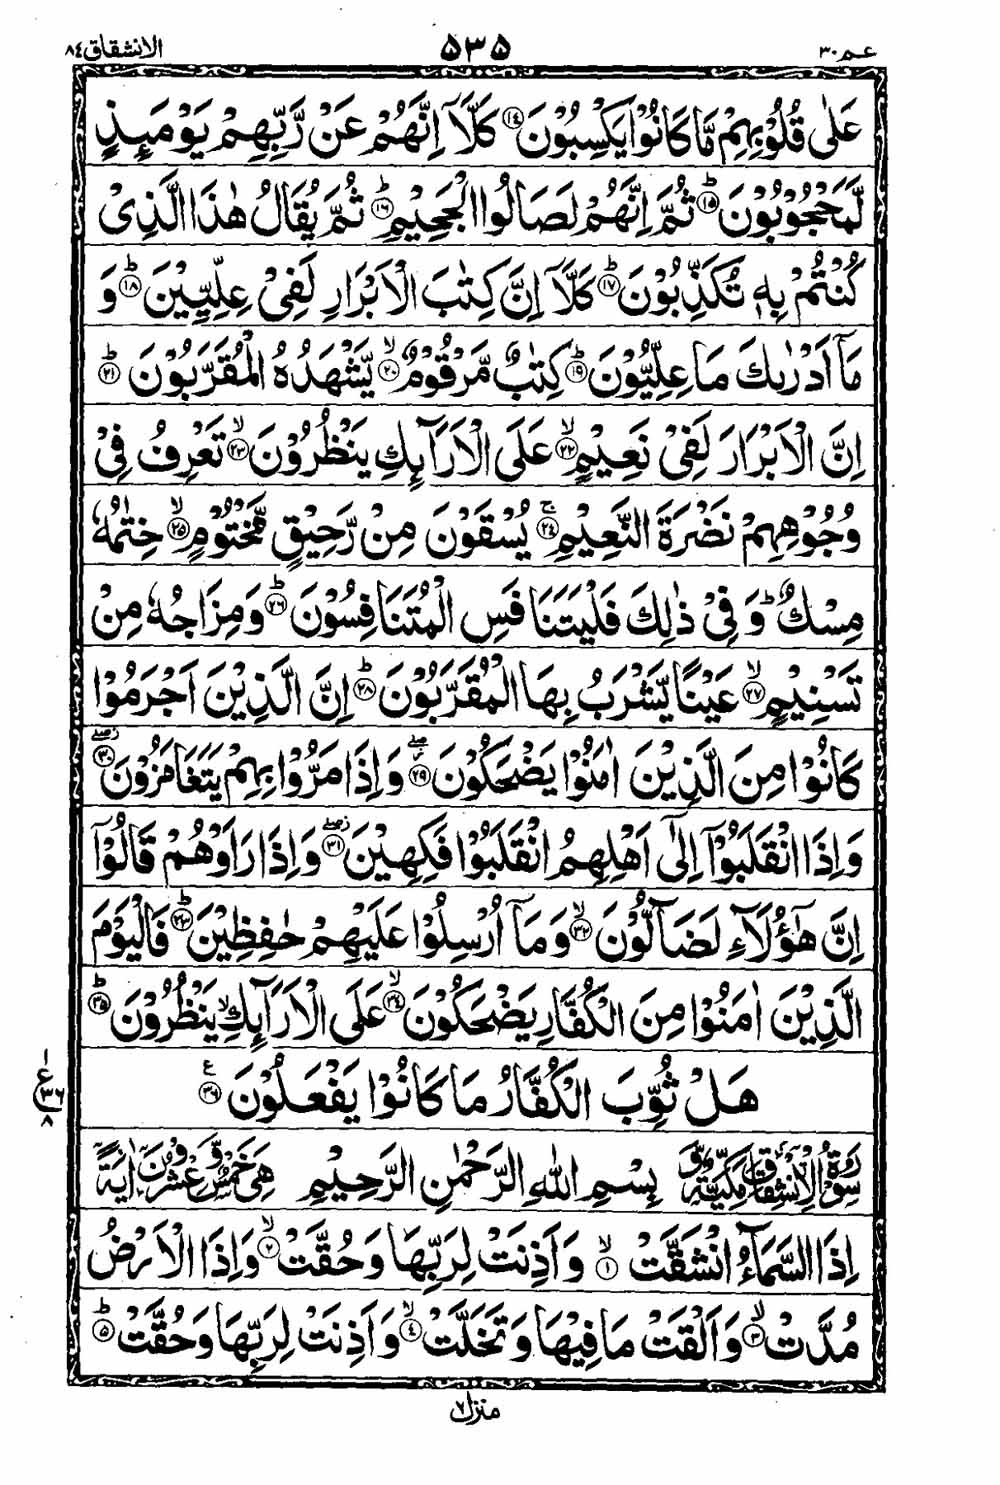 عـم ٣٠ ٥٣٥ الانشقاق ٨٤
عَلٰى قُلُوْبِهِمْ مَّا كَانُوْا يَكْسِبُوْنَ ۝١٤ كَلَّاۤ اِنَّهُمْ عَنْ رَّبِّهِمْ يَوْمَىِٕذٍ
لَّمَحْجُوْبُوْنَ ؕ۝١٥ ثُمَّ اِنَّهُمْ لَصَالُوا الْجَحِيْمِ ؕ۝١٦ ثُمَّ يُقَالُ هٰذَا الَّذِىْ
كُنْتُمْ بِهٖ تُكَذِّبُوْنَ ؕ۝١٧ كَلَّاۤ اِنَّ كِتٰبَ الْاَبْرَارِ لَفِىْ عِلِّيِّيْنَ ؕ۝١٨ وَ
مَاۤ اَدْرٰىكَ مَا عِلِّيُّوْنَ ؕ۝١٩ كِتٰبٌ مَّرْقُوْمٌ ۙ۝٢٠ يَّشْهَدُهُ الْمُقَرَّبُوْنَ ؕ۝٢١
اِنَّ الْاَبْرَارَ لَفِىْ نَعِيْمٍ ۙ۝٢٢ عَلَى الْاَرَآىِٕكِ يَنْظُرُوْنَ ۙ۝٢٣ تَعْرِفُ فِىْ
وُجُوْهِهِمْ نَضْرَةَ النَّعِيْمِ ۚ۝٢٤ يُسْقَوْنَ مِنْ رَّحِيْقٍ مَّخْتُوْمٍ ۙ۝٢٥ خِتٰمُهٗ
مِسْكٌ ؕ وَ فِىْ ذٰلِكَ فَلْيَتَنَافَسِ الْمُتَنَافِسُوْنَ ؕ۝٢٦ وَ مِزَاجُهٗ مِنْ
تَسْنِيْمٍ ۙ۝٢٧ عَيْنًا يَّشْرَبُ بِهَا الْمُقَرَّبُوْنَ ؕ۝٢٨ اِنَّ الَّذِيْنَ اَجْرَمُوْا
كَانُوْا مِنَ الَّذِيْنَ اٰمَنُوْا يَضْحَكُوْنَ ۖ۝٢٩ وَ اِذَا مَرُّوْا بِهِمْ يَتَغَامَزُوْنَ ۖ۝٣٠
وَ اِذَا انْقَلَبُوْۤا اِلٰۤى اَهْلِهِمُ انْقَلَبُوْا فَكِهِيْنَ ۖ۝٣١ وَ اِذَا رَاَوْهُمْ قَالُوْۤا
اِنَّ هٰۤؤُلَآءِ لَضَآلُّوْنَ ۙ۝٣٢ وَ مَاۤ اُرْسِلُوْا عَلَيْهِمْ حٰفِظِيْنَ ؕ۝٣٣ فَالْيَوْمَ
الَّذِيْنَ اٰمَنُوْا مِنَ الْكُفَّارِ يَضْحَكُوْنَ ۙ۝٣٤ عَلَى الْاَرَآىِٕكِ ۙ يَنْظُرُوْنَ ؕ۝٣٥
هَلْ ثُوِّبَ الْكُفَّارُ مَا كَانُوْا يَفْعَلُوْنَ ۝٣٦ ع
١ ع ٣٦ ٨
سُوْرَةُ الْاِنْشِقَاقِ مَكِّيَّةٌ وَّ بِسْمِ اللهِ الرَّحْمٰنِ الرَّحِيْمِ هِىَ خَمْسٌ وَّ عِشْرُوْنَ اٰيَةً
اِذَا السَّمَآءُ انْشَقَّتْ ۙ۝١ وَ اَذِنَتْ لِرَبِّهَا وَ حُقَّتْ ۙ۝٢ وَ اِذَا الْاَرْضُ
مُدَّتْ ۙ۝٣ وَ اَلْقَتْ مَا فِيْهَا وَ تَخَلَّتْ ۙ۝٤ وَ اَذِنَتْ لِرَبِّهَا وَ حُقَّتْ ؕ۝٥
منزل ٧